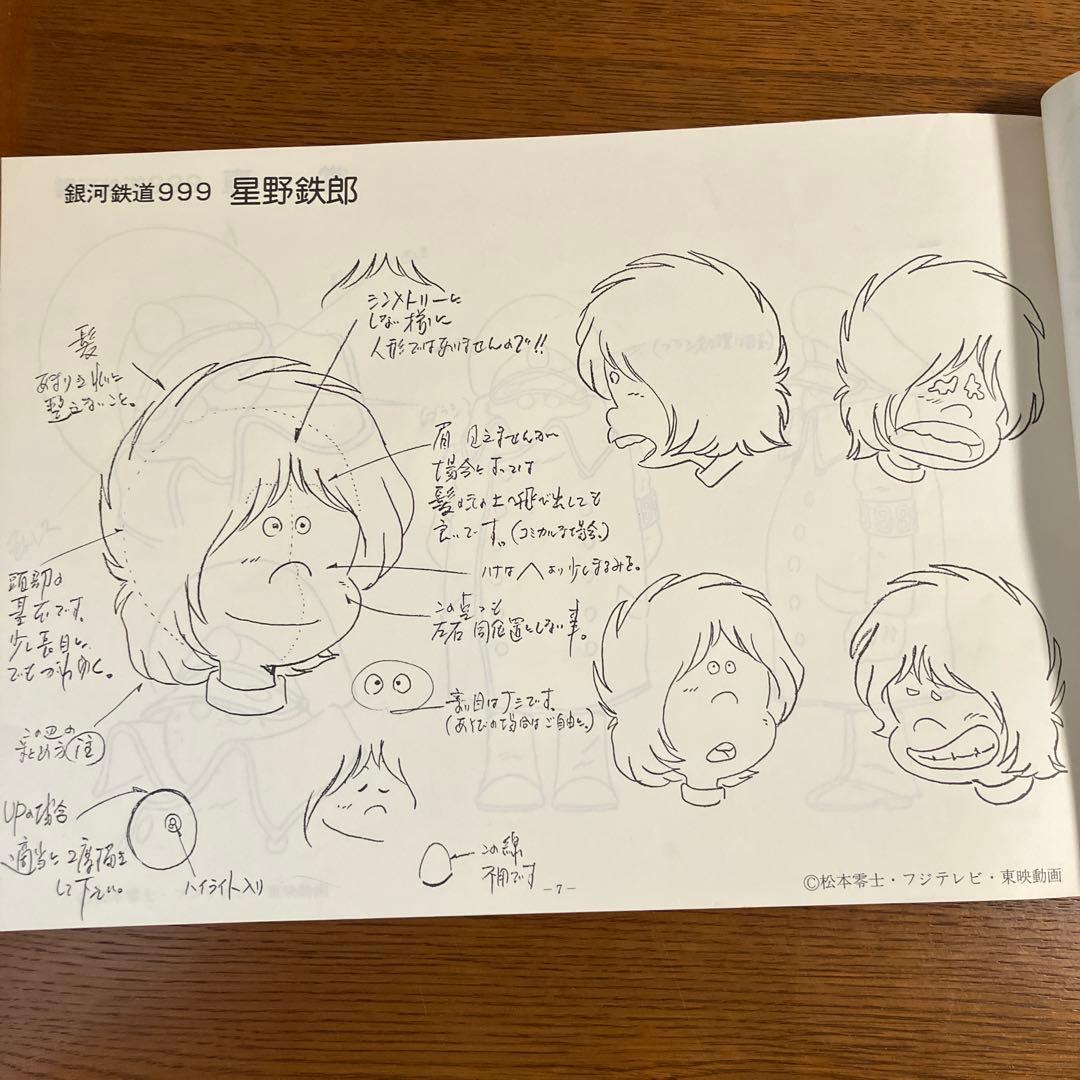 銀河鉄道999 星野鉄郎
シンメトリーに
しない様に
人形ではありませんので!!
髪
あまりきれいに
整えないこと。
眉 見えませんが
場合によっては
髪の毛の上へ飛び出しても
良いです。(コミカルな場合。)
ハナは へ より少しまるみを。
この点つも
左右同位置としない事。
頭部の
基本です。
少し長目に、
でもつぶれなく。
この辺の
まとめ方 注
黒目は丁ミです。
(あそびの場合はご自由に。)
UPの場合
適当に2度描き
して下さい。
ハイライト入り
この線
不用です
-7-
©松本零士・フジテレビ・東映動画